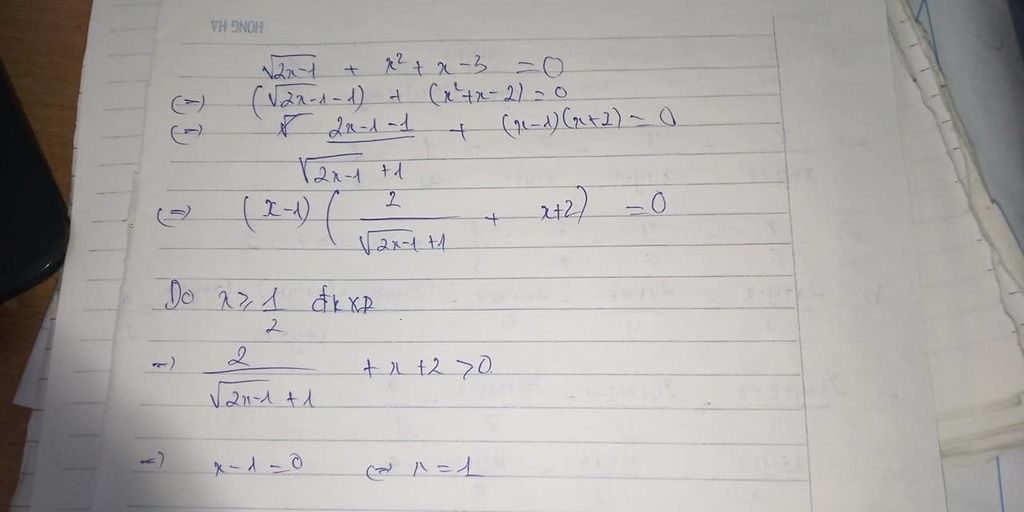 HONG HA
√2x-1 + x² + x - 3 = 0
(=) (√2x-1 - 1) + (x²+x-2) = 0
(=) 2x-1-1 / √2x-1 + 1 + (x-1)(x+2) = 0
(=) (x-1) ( 2 / √2x-1 + 1 + x+2) = 0
Do x ≥ 1/2 đkxđ
=) 2 / √2x-1 + 1 + x + 2 > 0
=) x-1 = 0 (=) x = 1